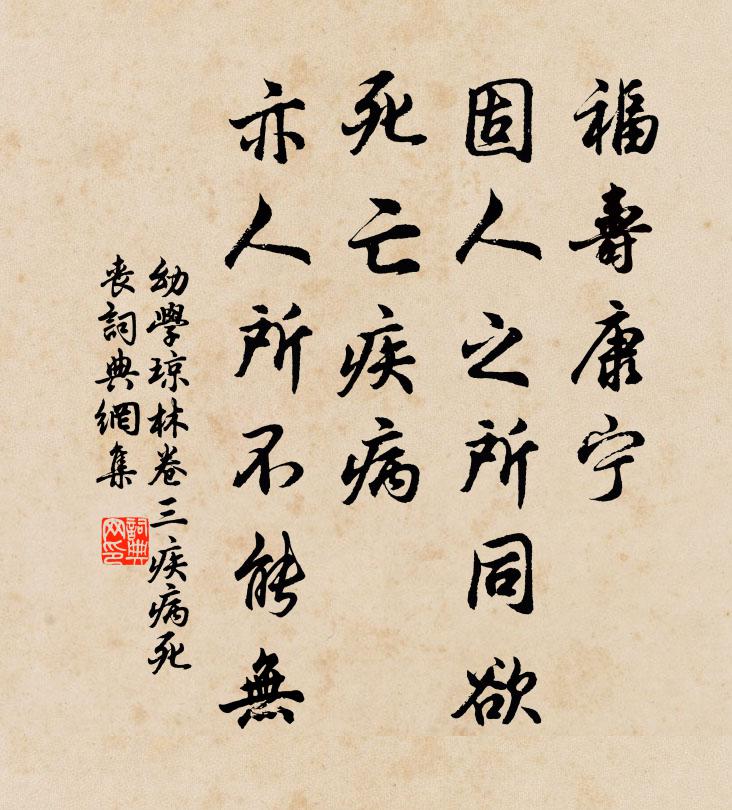 福壽康宁
固人之所同欲
死亡疾病
亦人所不能無
幼學琼林卷三疾病死
丧詞典網集
詞典
网印